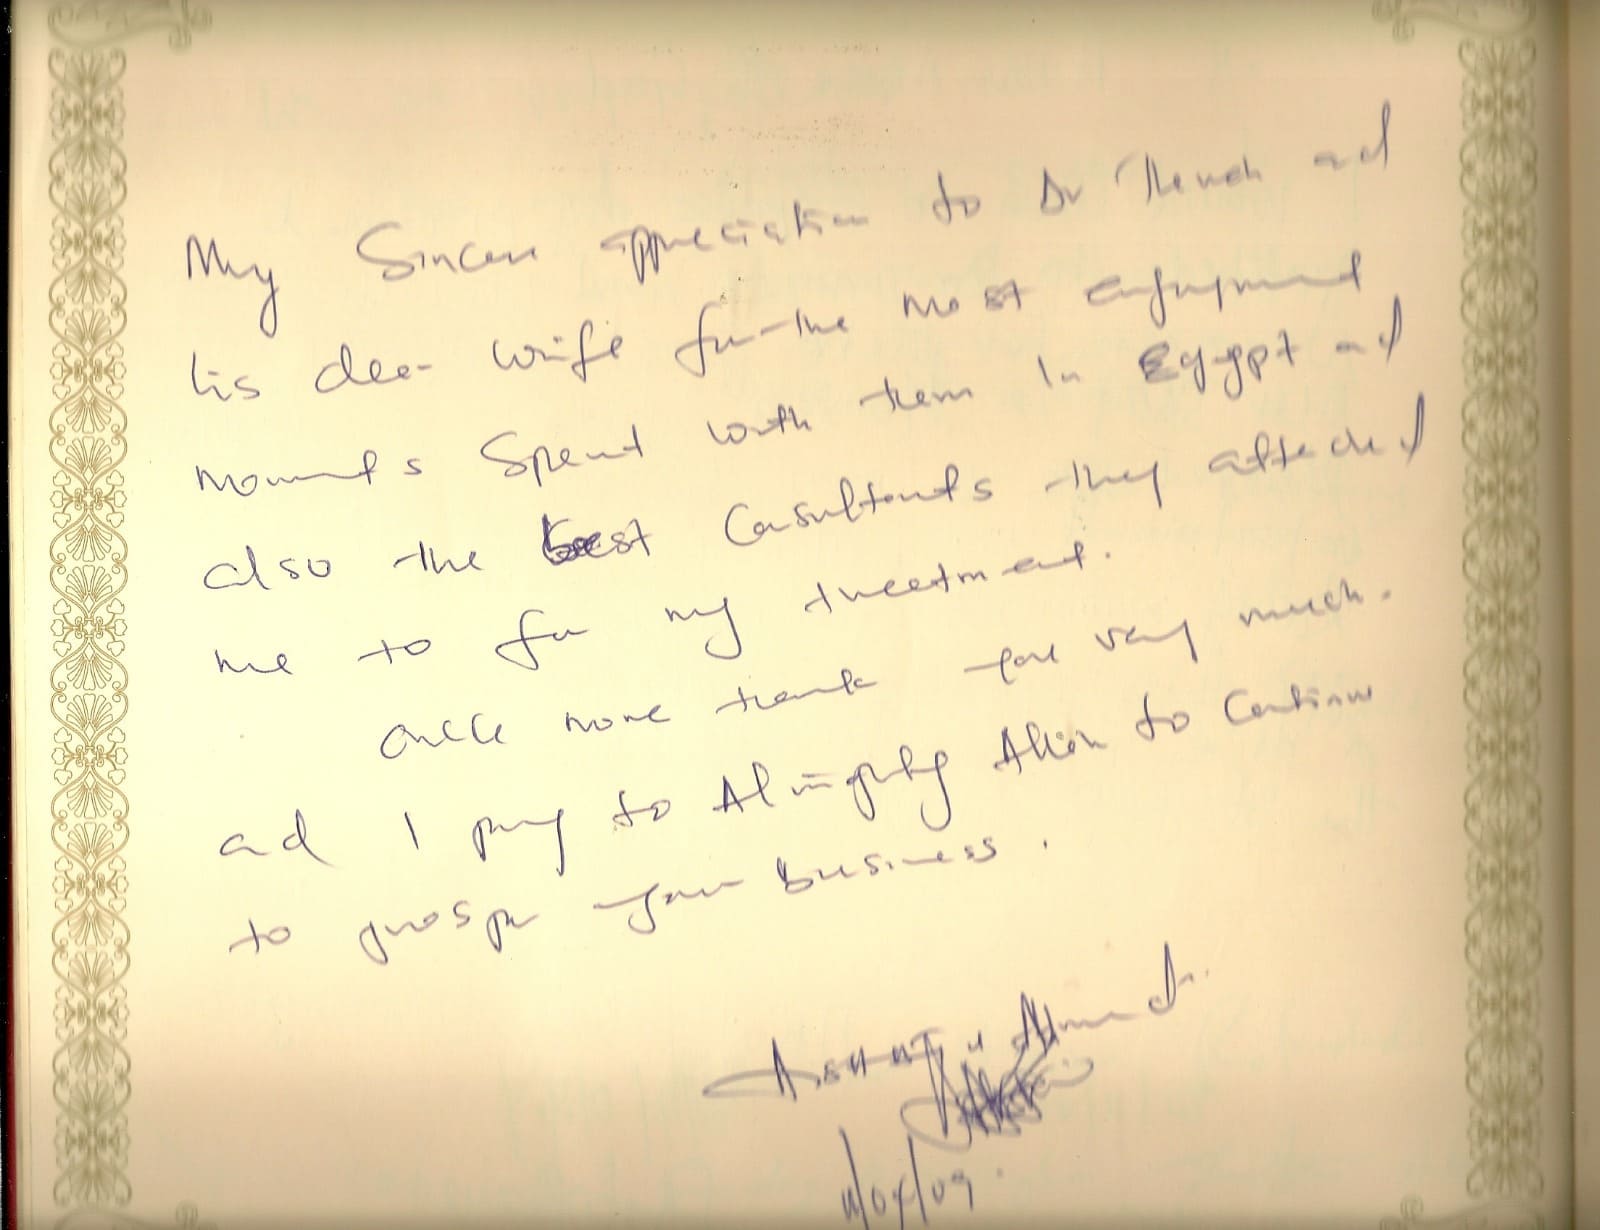 My Sincere appreciation to Dr and
his dear wife for the most enjoyment
moments Spent with them In Egypt and
also the best Consultants they attached
me to for my treetment.
Once more thank you very much.
and I pray to Almighty Allah to Continue
to prosper your business.
Ahmed.
11/04/09.